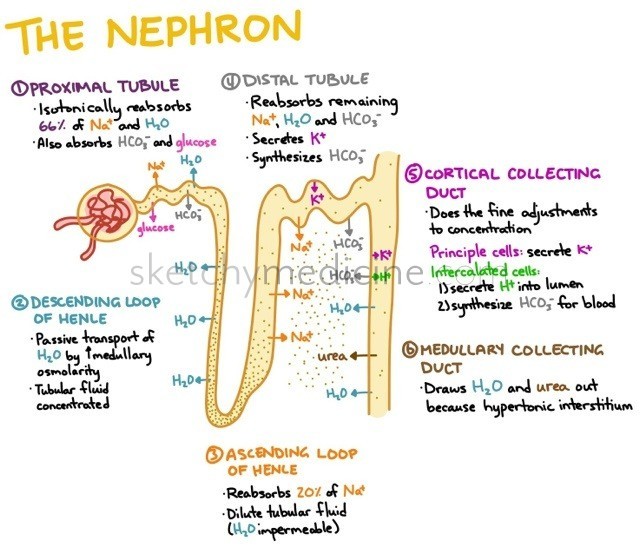 THE NEPHRON
① PROXIMAL TUBULE
· Isotonically reabsorbs
66% of Na⁺ and H₂O
· Also absorbs HCO₃⁻ and glucose
④ DISTAL TUBULE
· Reabsorbs remaining
Na⁺, H₂O and HCO₃⁻
· Secretes K⁺
· Synthesizes HCO₃⁻
⑤ CORTICAL COLLECTING
DUCT
· Does the fine adjustments
to concentration
Principle cells: secrete K⁺
Intercalated cells:
1) secrete H⁺ into lumen
2) synthesize HCO₃⁻ for blood
Na⁺
H₂O
glucose
HCO₃⁻
K⁺
Na⁺
HCO₃⁻
K⁺
H₂O
sketchymedicine.com
HCO₃⁻
H⁺
② DESCENDING LOOP
OF HENLE
· Passive transport of
H₂O by ↑medullary
osmolarity
· Tubular fluid
concentrated
H₂O
H₂O
Na⁺
Na⁺
H₂O
urea
H₂O
⑥ MEDULLARY COLLECTING
DUCT
· Draws H₂O and urea out
because hypertonic interstitium
③ ASCENDING LOOP
OF HENLE
· Reabsorbs 20% of Na⁺
· Dilute tubular fluid
(H₂O impermeable)